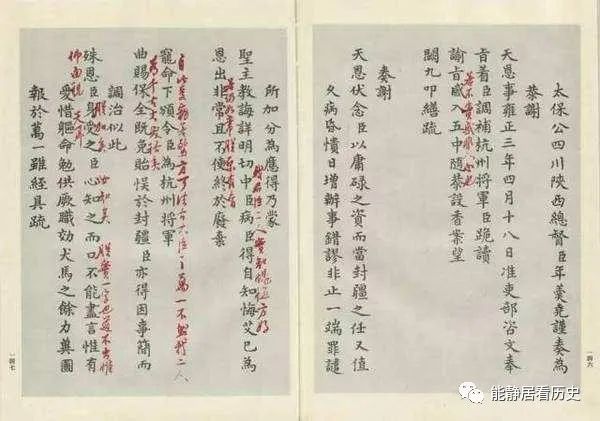 太保公四川陝西總督臣年羹堯謹奏為
恭謝
天恩事雍正三年四月十八日准吏部咨文奉
旨着臣調補杭州將軍臣跪讀
諭旨感入五中隨恭設香案望
闕九叩繕疏
奏謝
天恩伏念臣以庸碌之資而當封疆之任又值
久病昏憒日增辦事錯謬非止一端罪譴
一四六
所加分為應得乃蒙
聖主教誨詳明切中臣病臣得自知悔艾已為
恩出非常且不便終於廢棄
寵命下頒令臣為杭州將軍
曲賜保全既免貽悞於封疆臣亦得因事簡而
調治似此
殊恩臣身受之臣心知之而口不能盡言惟有
朕實一字也道不出惟
愛惜軀命勉供厥職効犬馬之餘力冀圖
報於萬一雖經具疏
一四七
能静居看历史